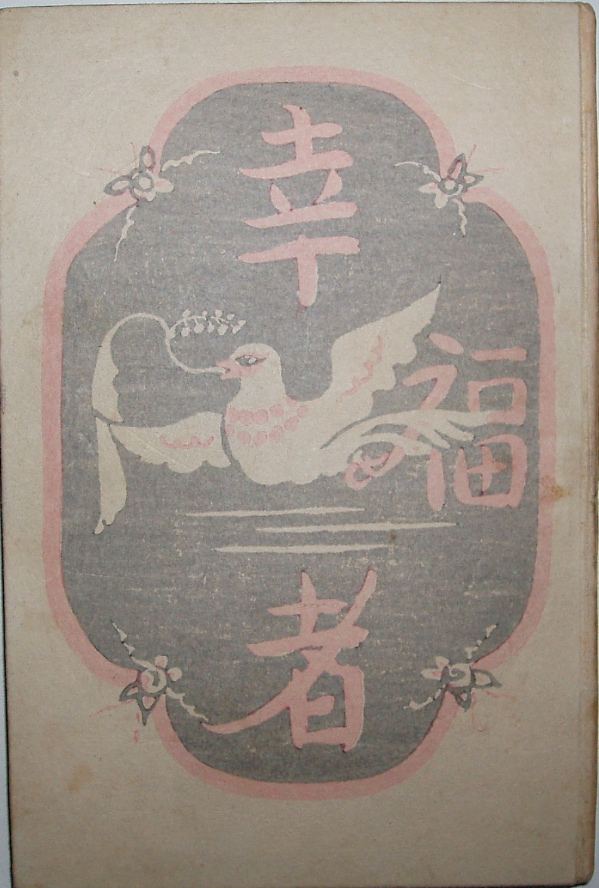 幸
福
者